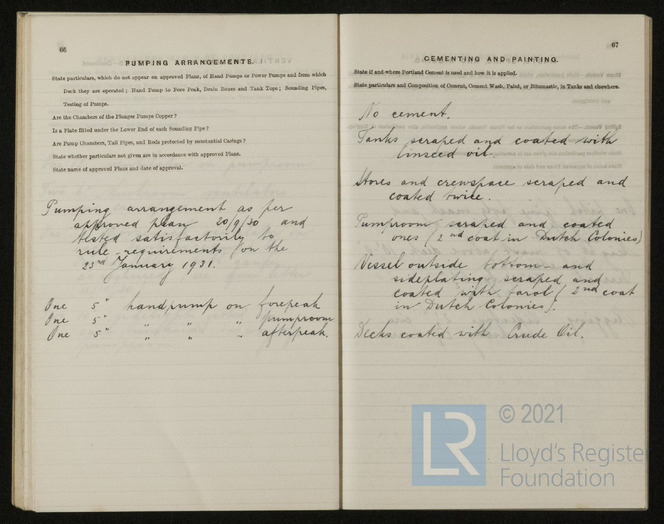 66
PUMPING ARRANGEMENTS.
State particulars, which do not appear on approved Plans, of Hand Pumps or Power Pumps and from which
Deck they are operated; Hand Pump to Fore Peak, Drain Boxes and Tank Tops; Sounding Pipes,
Testing of Pumps.
Are the Chambers of the Plunger Pumps Copper?
Is a Plate fitted under the Lower End of each Sounding Pipe?
Are Pump Chambers, Tail Pipes, and Rods protected by substantial Casings?
State whether particulars not given are in accordance with approved Plans.
State name of approved Plans and date of approval.
Pumping arrangement as per
approved plan 20/9/30 and
tested satisfactorily to
rule requirements on the
23rd January 1931.
One 5" handpump on forepeak
One 5" " " " pumproom
One 5" " " " afterpeak.
67
CEMENTING AND PAINTING.
State if and where Portland Cement is used and how it is applied.
State particulars and Composition of Cement, Cement Wash, Paint, or Bitumastic, in Tanks and elsewhere.
No cement.
Tanks scraped and coated with
linseed oil.
Stores and crewspace scraped and
coated twice.
Pumproom scraped and coated
ones (2nd coat in Dutch Colonies)
Vessel outside bottom and
sideplating scraped and
coated with (2nd coat
in Dutch Colonies).
Decks coated with Crude Oil.
LR
© 2021
Lloyd's Register
Foundation